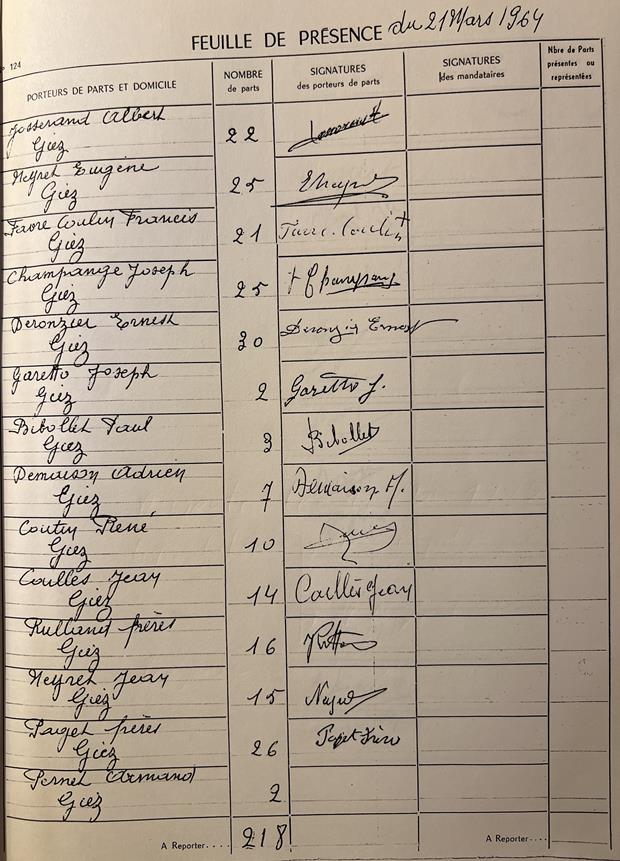 FEUILLE DE PRÉSENCE du 21 Mars 1964
N° 124
PORTEURS DE PARTS ET DOMICILE
NOMBRE de parts
SIGNATURES des porteurs de parts
SIGNATURES des mandataires
Nbre de Parts présentes ou représentées
Josserand Albert
Giez 22
Neyret Eugène
Giez 25 ENeyret
Favre Coutin Francis
Giez 21 Favre. Coutin
Champange Joseph
Giez 25 Champange
Deronzier Ernest
Giez 30 Deronzier Ernest
Garetto Joseph
Giez 2 Garetto J.
Bibollet Paul
Giez 3 Bibollet
Demaison Adrien
Giez 7 Demaison A.
Coutin René
Giez 10
Coulles Jean
Giez 14 Coullès Jean
Rulland frères
Giez 16
Neyret Jean
Giez 15 Neyret
Paget frères
Giez 26 Paget Frères
Pernet Armand
Giez 2
A Reporter.... 218 A Reporter....